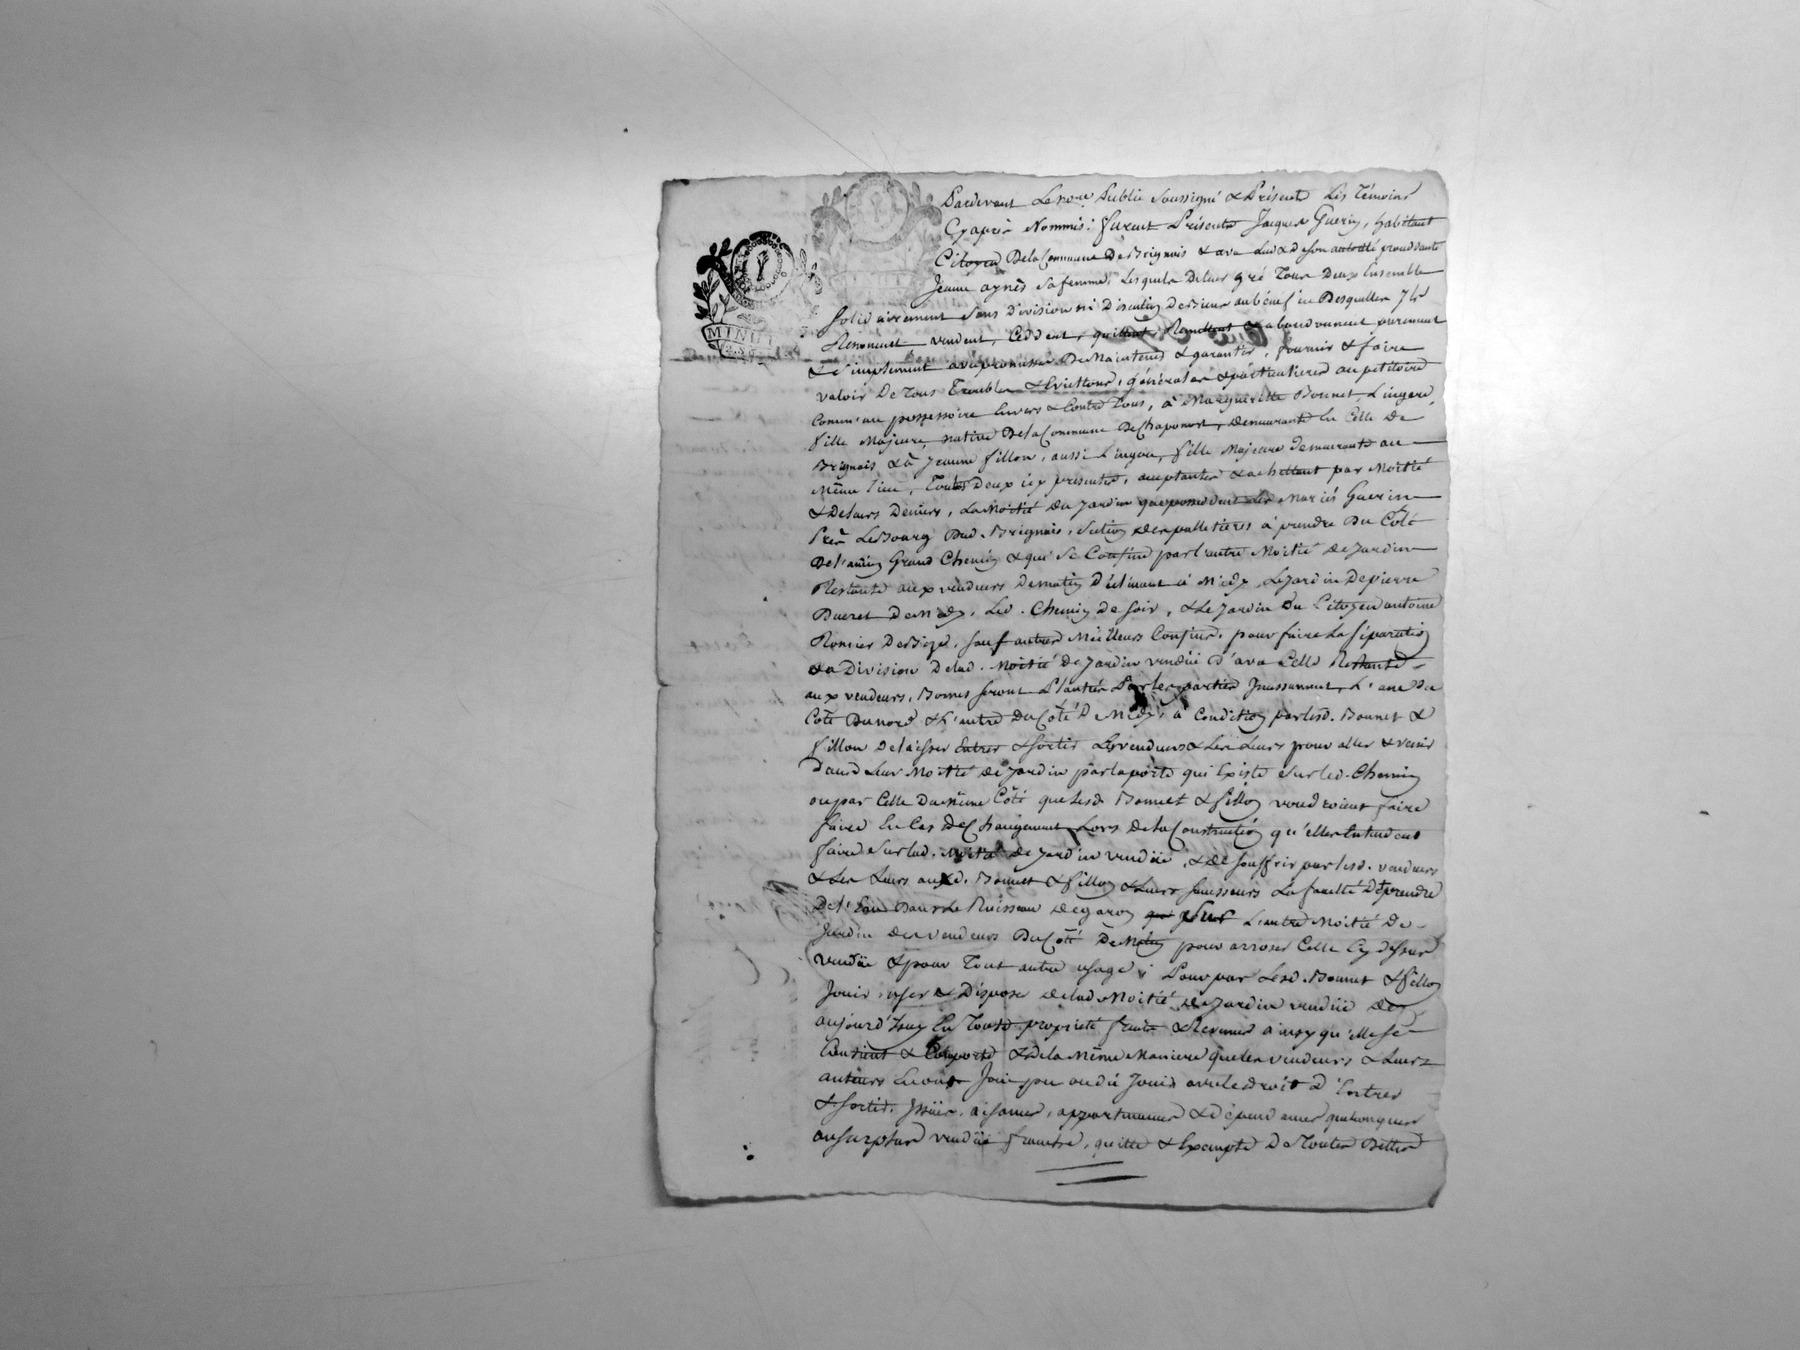 Pardevant Le nore Public Soussigné & Présents Les Témoins
Cyaprès Nommés: furent Présents Jacques Guerin, habitant
Citoyen De la Commune De Brignais & avec lui & de son autorité procédante
Jeanne aynès Sa femme, Lesquels De leur gré Tous Deux Ensemble
Solidairement Sans Division ni Discution De Biens au bénéfice Desquelles Ils
MINUT
Renoncent vendent, Cèddent, quittent, Remettent & abandonnent purement
& Simplement avec promesse De Maintenir & garantir, fournir & faire
valoir De Tous Troubles & Evictions, générales & particulieres au petitoire
Comme au possessoire Envers & Contre Tous, à Margueritte Bonnet, Lingere,
fille Majeure, native De la Commune De Chaponost, Demeurante En Celle De
Brignais & à Jeanne fillon, aussi Lingere, fille Majeure Demeurante au
Même Lieu, Toutes Deux icy présentes, acceptantes & achettant par Moitié
& De leurs Deniers, La Moitié Du Jardin que possedent Les Mariés Guerin
Près Le Bourg Dud. Brignais, Section des palletieres à prendre Du Côté
De l'ancien Grand Chemin & qui Se Confine par l'autre Moitié de Jardin
Restante aux vendeurs De matin Déclinant à Midy, Le Jardin De pierre
De Midy, Led. Chemin de Soir, & Le Jardin Du Citoyen antoine
De Bize, Sauf autres Meilleurs Confins, pour faire La Séparation
& la Division De lad. Moitié De Jardin vendüe D'avec Celle Restante
aux vendeurs, Bornes Seront Plantées Par les parties Incessamment, L'une Du
Côté Du nord & L'autre Du Côté De Midy, à Condition par lesd. Bonnet &
fillon De laisser Entrer & Sortir Les vendeurs & Les Leurs pour aller & venir
Dans Leur Moitié de Jardin par la porte qui Existe Sur led. Chemin
ou par Celle Du même Côté que Lesd. Bonnet & fillon voudroient faire
faire En Cas De Changement Lors De la Construction qu'elles Entendent
faire Sur lad. Moitié de Jardin vendüe, & De Souffrir par lesd. vendeurs
& Les Leurs auxd. Bonnet & fillon & Leurs Successeurs La faculté De prendre
De l'Eau Dans Le Ruisseau De garon Sur L'autre Moitié De
Jardin des vendeurs Du Côté De Matin pour arroser Celle Cy dessus
vendüe & pour Tout autre usage; Pour par Lesd. Bonnet & fillon
Jouir, user & Disposer De lad Moitié de Jardin vendüe Dez
aujourd'huy En Toute propriété fruits & Revenus ainsy qu'elle Se
Contient & Comporte & De la Même Maniere que les vendeurs & Leurs
auteurs En ont Joui, pu ou dû Jouir avec les droits D'Entrer
& Sortir, Issües, aisances, appartenances & Dépendances quelconques
au Surplus vendüe franche, quitte & Exempte De Toutes Dettes